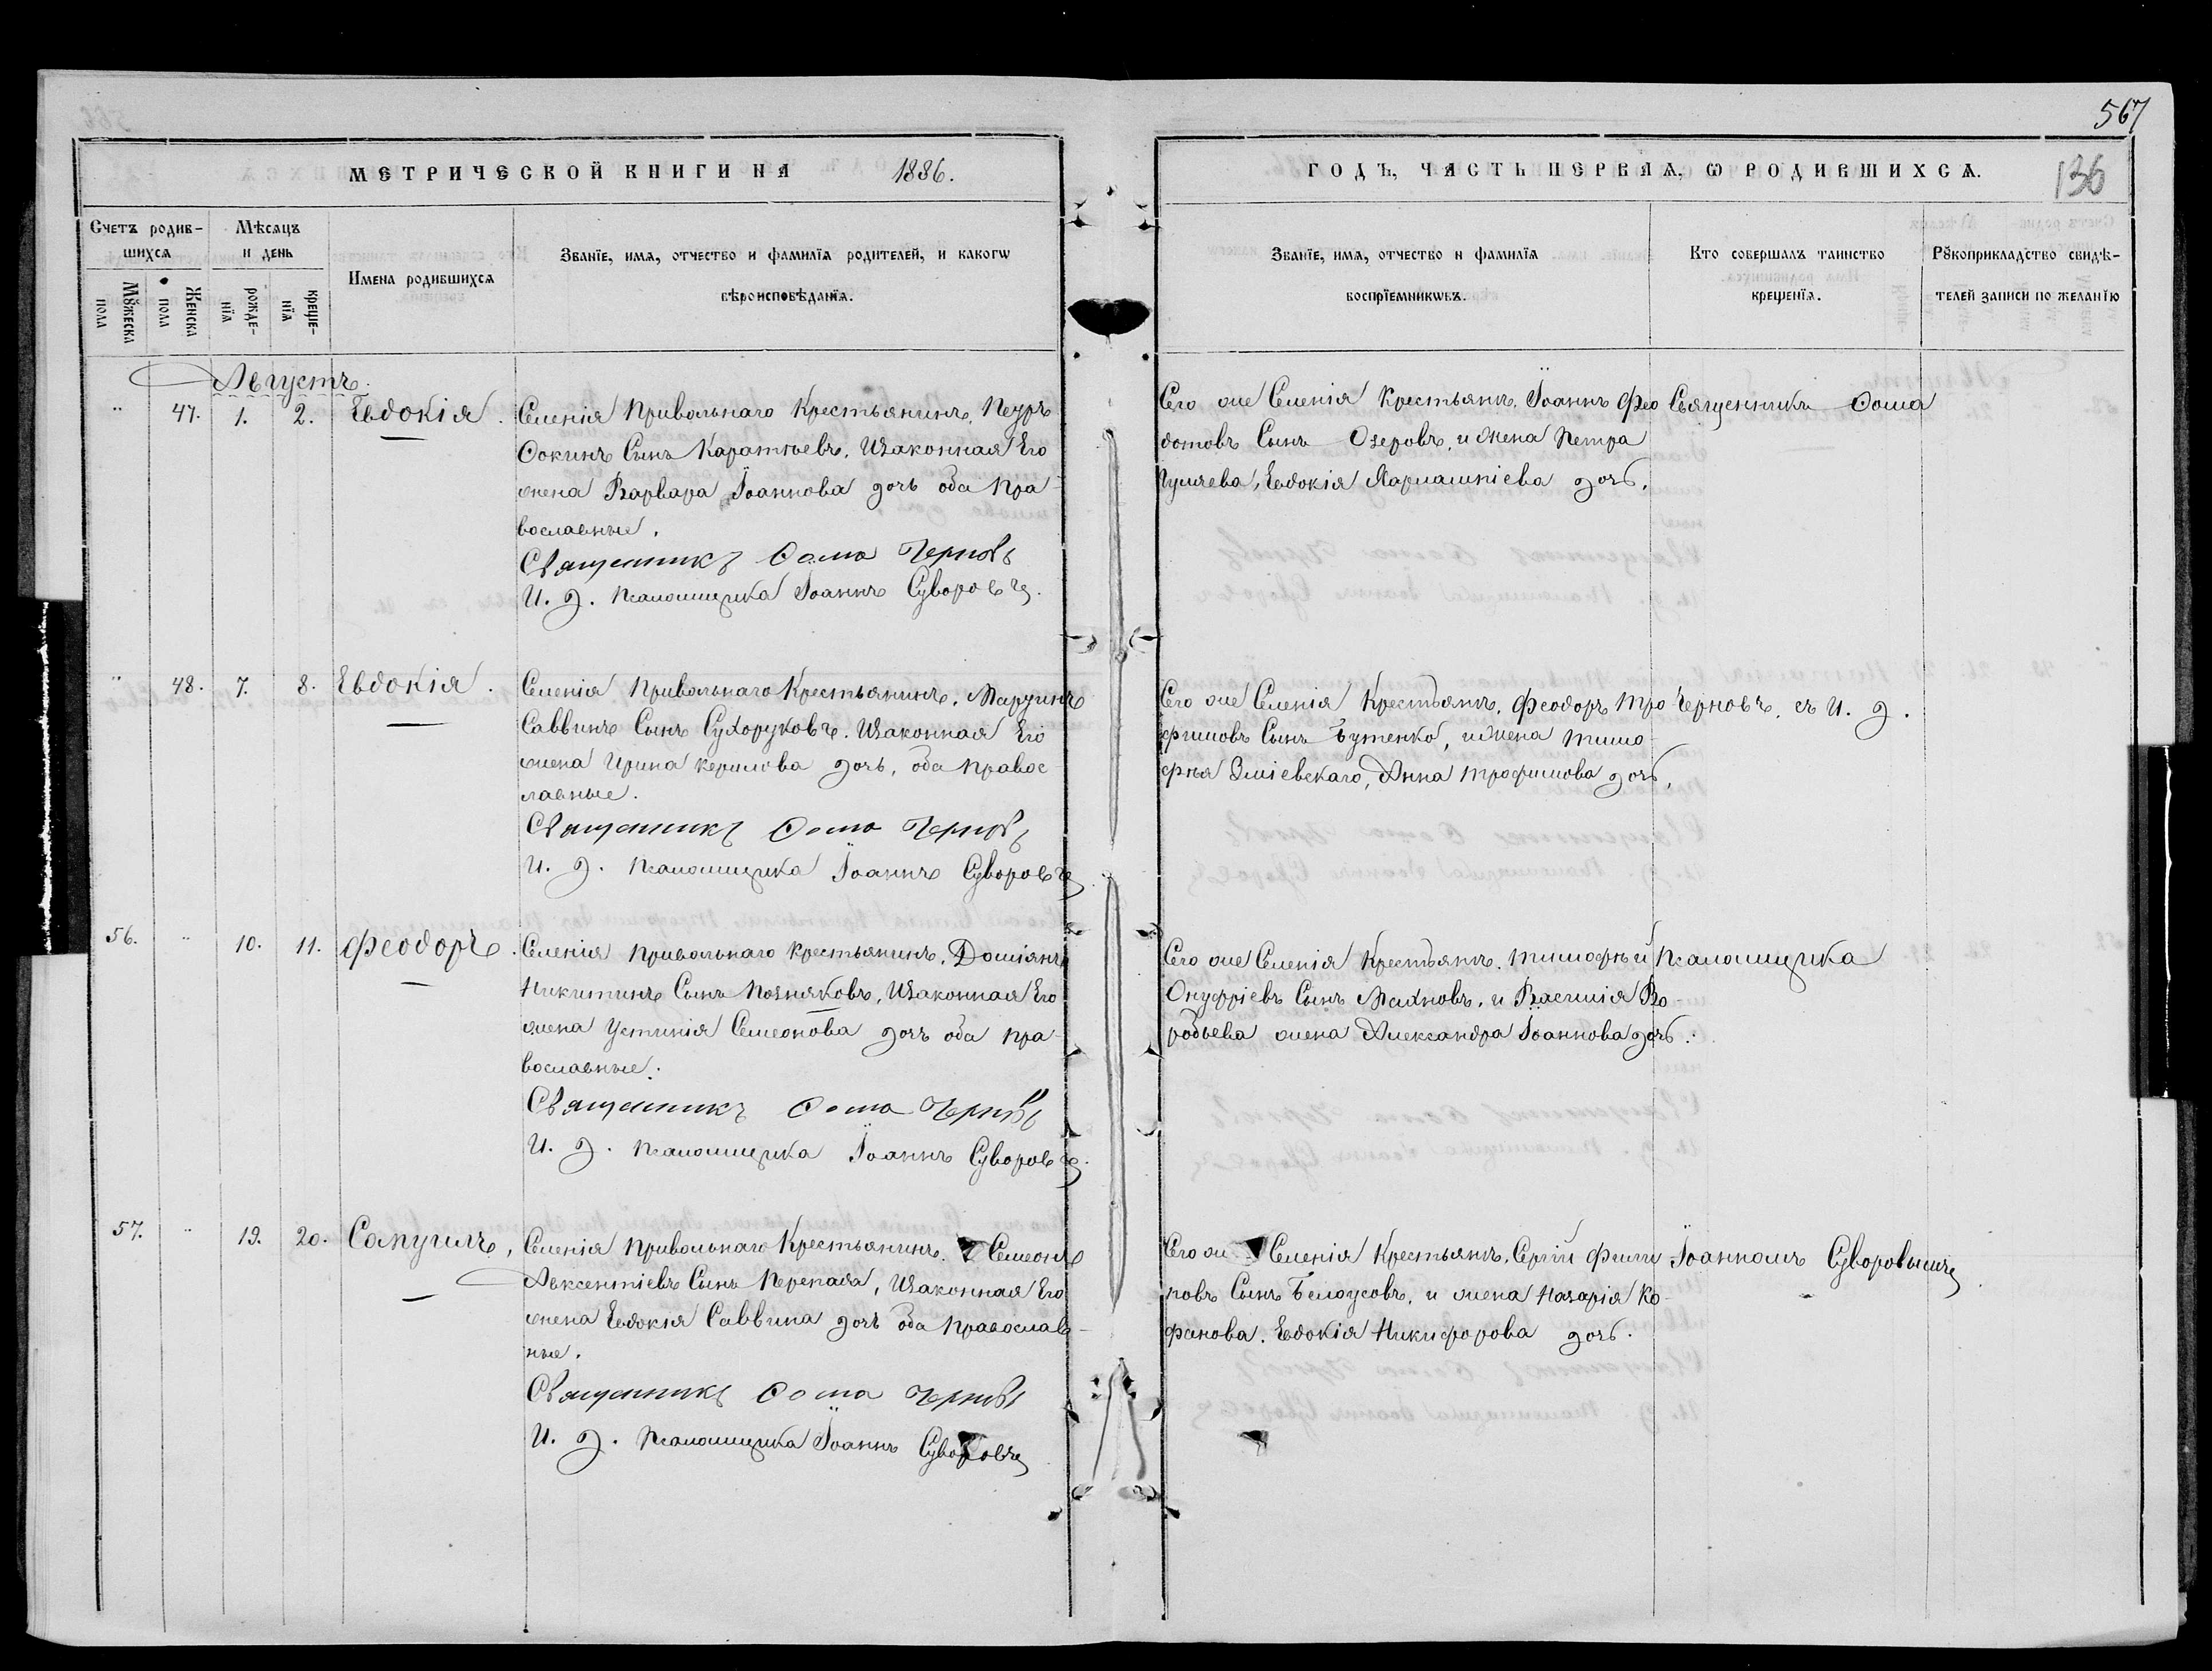 567
МЕТРИЧЕСКОЙ КНИГИ НА 1886.
ГОДЪ, ЧАСТЬ ПЕРВАЯ, Ѡ РОДИВШИХСѦ.
136
Счетъ родив-
шихсѧ
Мꙋжеска пола
Женска пола
Мѣсѧцъ
и день
рожде-
нїѧ
креще-
нїѧ
Имена родившихсѧ
Званїе, имѧ, отчество и фамилїѧ родителей, и какогѡ
вѣроисповѣданїѧ.
Званїе, имѧ, отчество и фамилїѧ
воспрїемникѡвъ.
Кто совершалъ таинство
крещенїѧ.
Рꙋкоприкладство свидѣ-
телей записи по желанїю
Августъ.
" 47. 1. 2. Евдокія.
Селенія Привольнаго Крестьянинъ,
Ѳокинъ Сынъ Каратѣевъ. Изаконная Его
жена Варвара Іоаннова дочь оба пра-
вославные.
Священникъ Ѳома Черновъ
И. д. псаломщика Іоаннъ Суворовъ.
Сего же Селенія Крестьянъ. Іоаннъ Фео
дотовъ Сынъ Озеровъ, и жена Петра
Евдокія дочь.
Священникъ Ѳома
" 48. 7. 8. Евдокія.
Селенія Привольнаго Крестьянинъ.
Саввинъ Сынъ Сухоруковъ. Изаконная Его
жена Ирина дочь, оба правос-
лавные.
Священникъ Ѳома Черновъ
И. д. псаломщика Іоаннъ Суворовъ
Сего же Селенія Крестьянъ. Феодоръ Тро
фимовъ Сынъ Бутенко, ижена Тимо-
фея Зміевскаго, Анна Трофимова дочь.
Черновъ. съ И. д.
56. " 10. 11. Феодоръ.
Селенія Привольнаго Крестьянинъ. Доміянъ
Никитинъ Сынъ Позняковъ, Изаконная Его
жена Устинія Семеонова дочь оба пра-
вославные.
Священникъ Ѳома Черновъ
И. д. псаломщика Іоаннъ Суворовъ.
Сего же Селенія Крестьянъ. Тимофѣй
Онуфріевъ Сынъ Махновъ. и Василія Во-
робьева жена Александра Іоаннова дочь.
псаломщика
57. " 19. 20. Самуилъ,
Селенія Привольнаго Крестьянинъ. Семеонъ
Авксентіевъ Сынъ Перепада, Изаконная Его
жена Евдокія Саввина дочь оба православ-
ные.
Священникъ Ѳома Черновъ
И. д. псаломщика Іоаннъ Суворовъ
Сего же Селенія Крестьянъ. Сергій Фили
повъ Сынъ Белоусовъ. и жена Назарія Ко-
фанова. Евдокія Никифорова дочь.
Іоанномъ Суворовымъ.